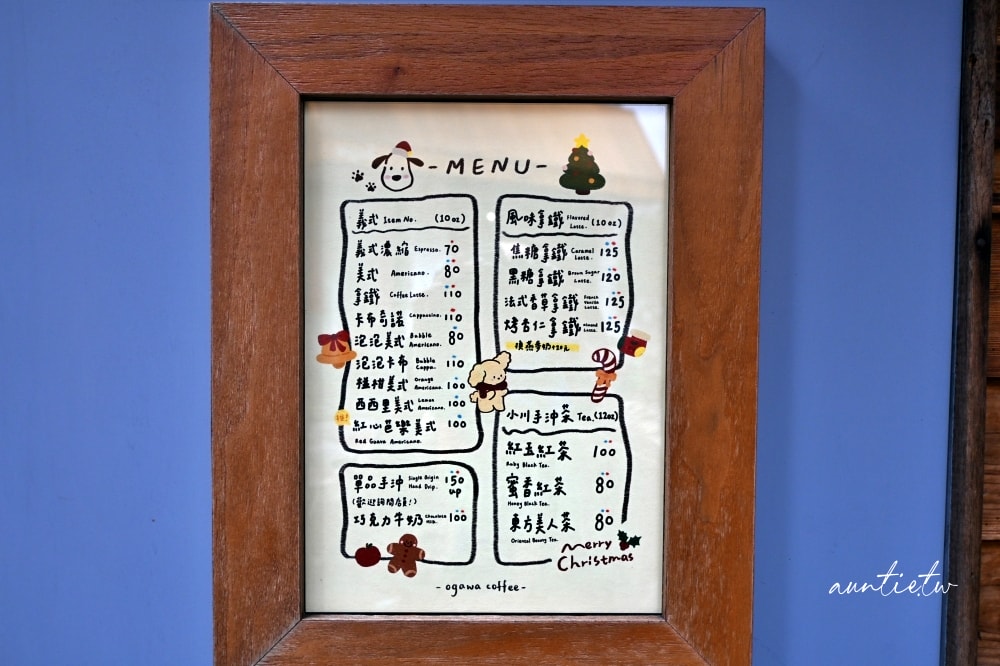 - MENU -
義式 Item No. (10oz)
義式濃縮 Espresso. 70
美式 Americano. 80
拿鐵 Coffee Latte. 110
卡布奇諾 Cappuccino. 110
泡泡美式 Bubble Americano. 80
泡泡卡布 Bubble Cappu. 110
桔柑美式 Orange Americano. 100
西西里美式 Lemon Americano. 100
推! 紅心芭樂美式 100
Red Guava Americano.
單品手沖 Single Origin Hand Drip. 150 up
(歡迎詢問店員!)
巧克力牛奶 Chocolate Milk. 100
風味拿鐵 Flavored Latte. (10oz)
焦糖拿鐵 Caramel Latte. 125
黑糖拿鐵 Brown Sugar Latte. 120
法式香草拿鐵 French Vanilla Latte. 125
烤杏仁拿鐵 Almond Latte. 125
換燕麥奶+20元
小川手沖茶 Tea. (12oz)
紅玉紅茶 100
Ruby Black Tea.
蜜香紅茶 80
Honey Black Tea.
東方美人茶 80
Oriental Beauty Tea.
Merry
Christmas
- ogawa coffee -
auntie.tw